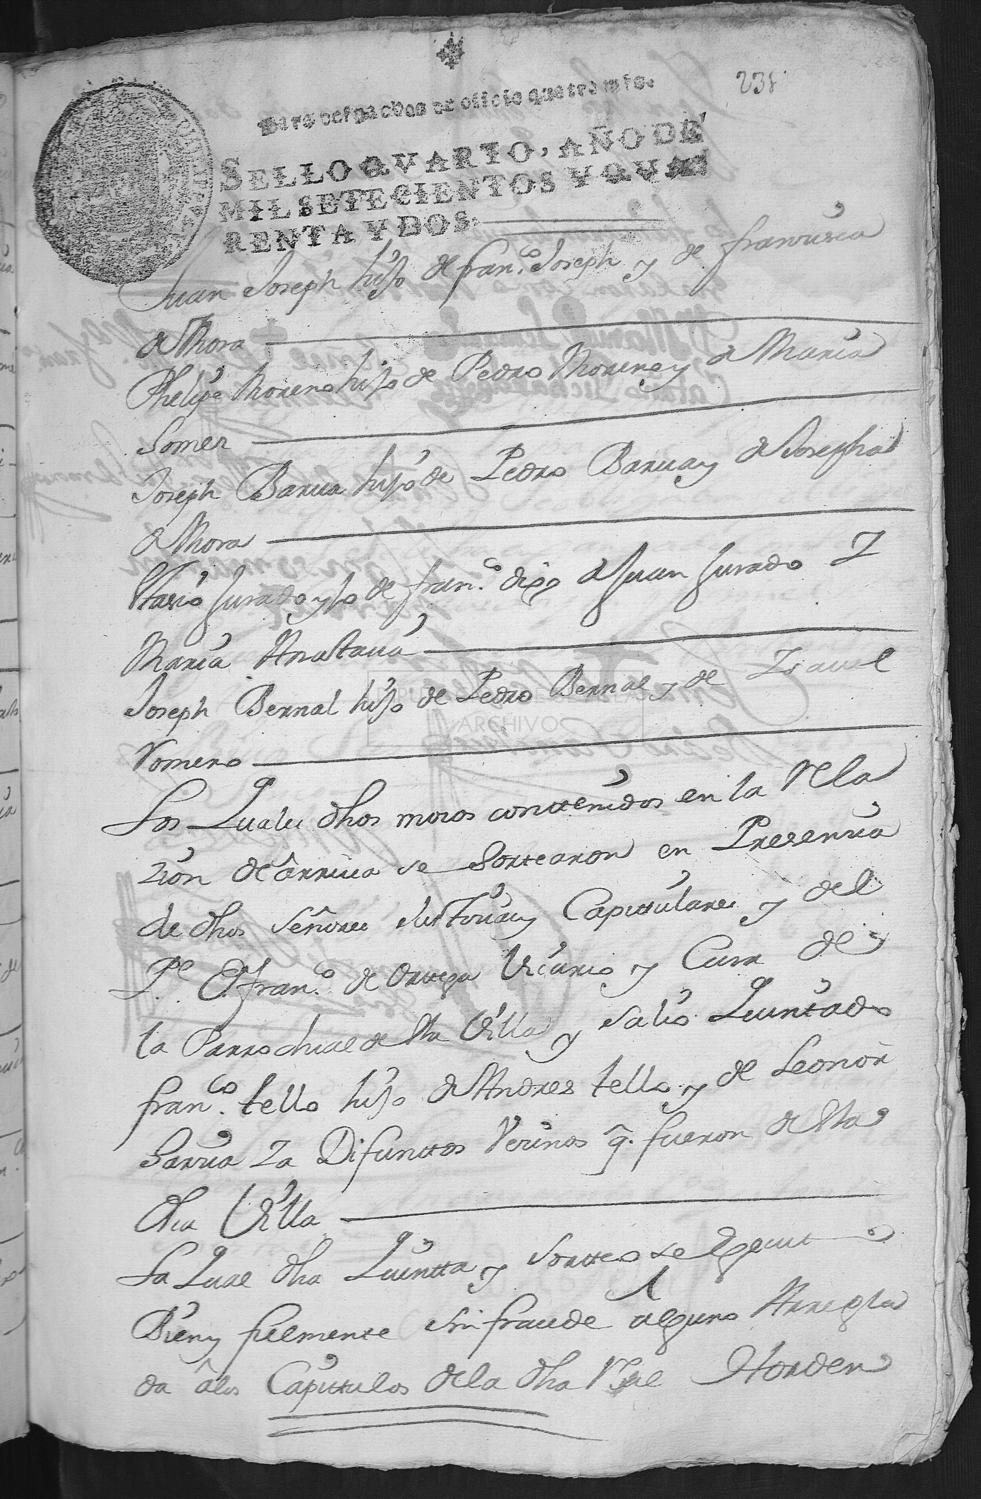 238
Para despachos de oficio quatro mrs.
SELLO QVARTO, AÑO DE
MIL SETECIENTOS Y QVA
RENTA Y DOS.
Juan Joseph hijo de fran.co Joseph y de francisca
de Mora
Phelipe Moreno hijo de Pedro Moreno y de Maria
Gomez
Joseph Barva hijo de Pedro Barva y de Josepha
de Mora
Jurado de fran.co digo de Juan Jurado Z
Maria Anastacia
Joseph Bernal hijo de Pedro Bernal y de Isavel
Romero
Los Quales dhos mozos conttenidos en la Rela
zion de arriva se Sortearon en Presenzia
de dhos Señores Justizia y Capittulares y del
P.e fran.co de Ortega Vicario y Cura de
la Parrochial de sta Villa y salio Quintado
fran.co tello hijo de Andres tello y de Leonor
Garzia Za Difunttos Vezinos q. fueron de sta
dha Villa
La Qual dha Quintta y sortteo se
Bien y fielmente sin fraude alguno Arregla
da a los Capittulos de la dha Rl Horden
ARCHIVO